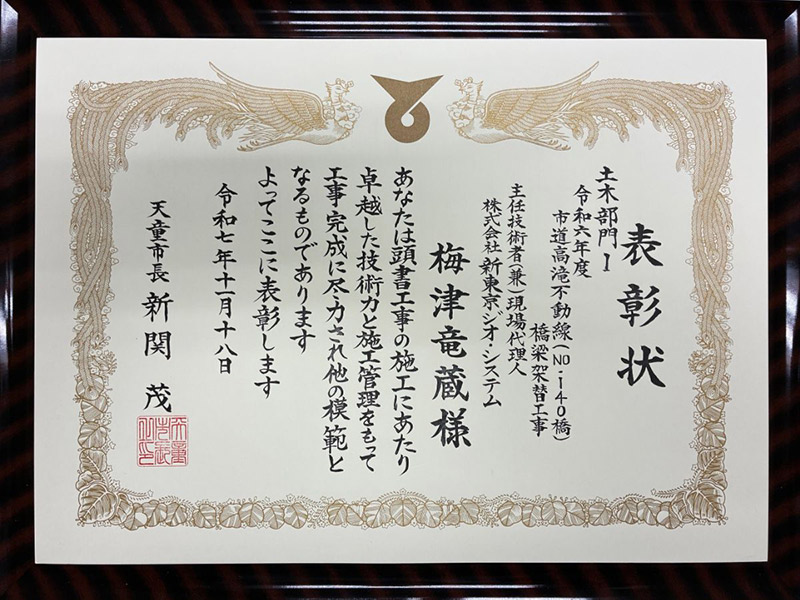 表彰状
土木部門Ⅰ
令和六年度
市道高滝不動線(NO.140橋)
橋梁架替工事
主任技術者(兼)現場代理人
株式会社 新東京ジオ・システム
梅津竜蔵様
あなたは頭書工事の施工にあたり
卓越した技術力と施工管理をもって
工事完成に尽力され他の模範と
なるものであります
よってここに表彰します
令和七年十一月十八日
天童市長 新関 茂